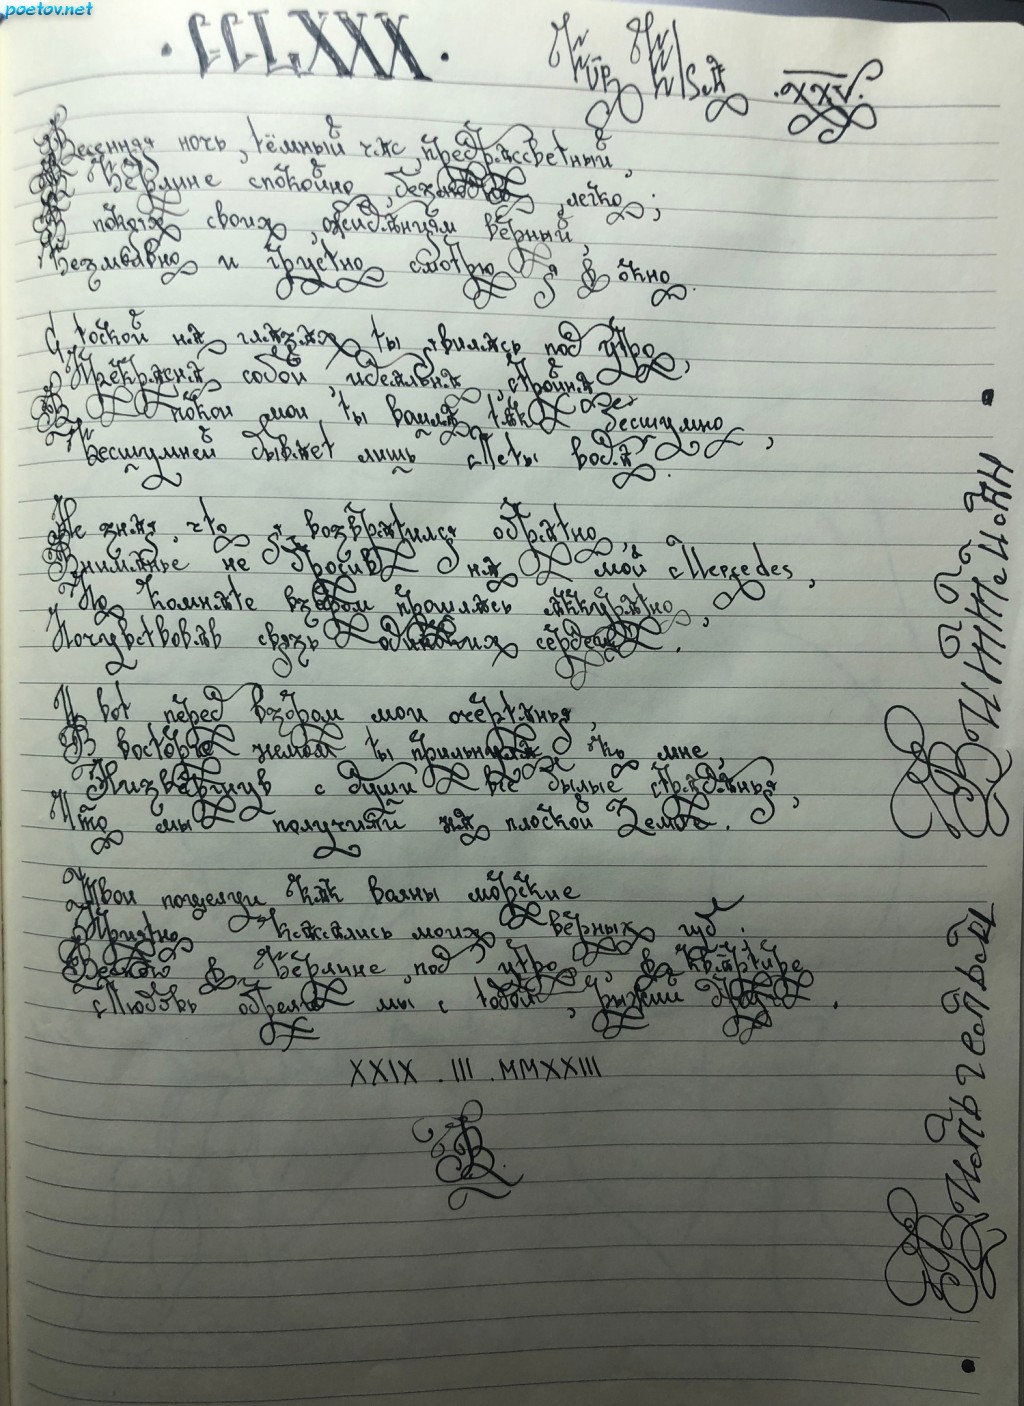 poetov.net
· CCLXXX ·
Für Wisa
·XXV·
Весенняя ночь, тёмный час, предрассветный,
В Берлине спокойно, безмолвно, легко;
В покоях своих, ожиданиям верный,
Безмолвно и грустно смотрю я в окно.
С тоской на глазах ты явилась под утро,
Прекрасна собой, идеальна, стройна
В покои мои ты вошла так бесшумно,
Бесшумней бывает лишь Леты вода.
Не зная, что я возвратился обратно,
Вниманье не бросив на мой Mercedes,
По комнате взором прошлась аккуратно,
Почувствовав связь одиноких сердец.
И вот перед взором мои очертанья,
В восторге немом ты прильнула ко мне,
Низвергнув с души все былые страданья,
Что мы получили на плоской Земле.
Твои поцелуи как волны морские
Приятно касались моих верных губ.
Весною в Берлине, под утро, в квартире
Любовь обрели мы с тобой, рыжий
XXIX . III . MMXXIII
Вильгельм
Виттман